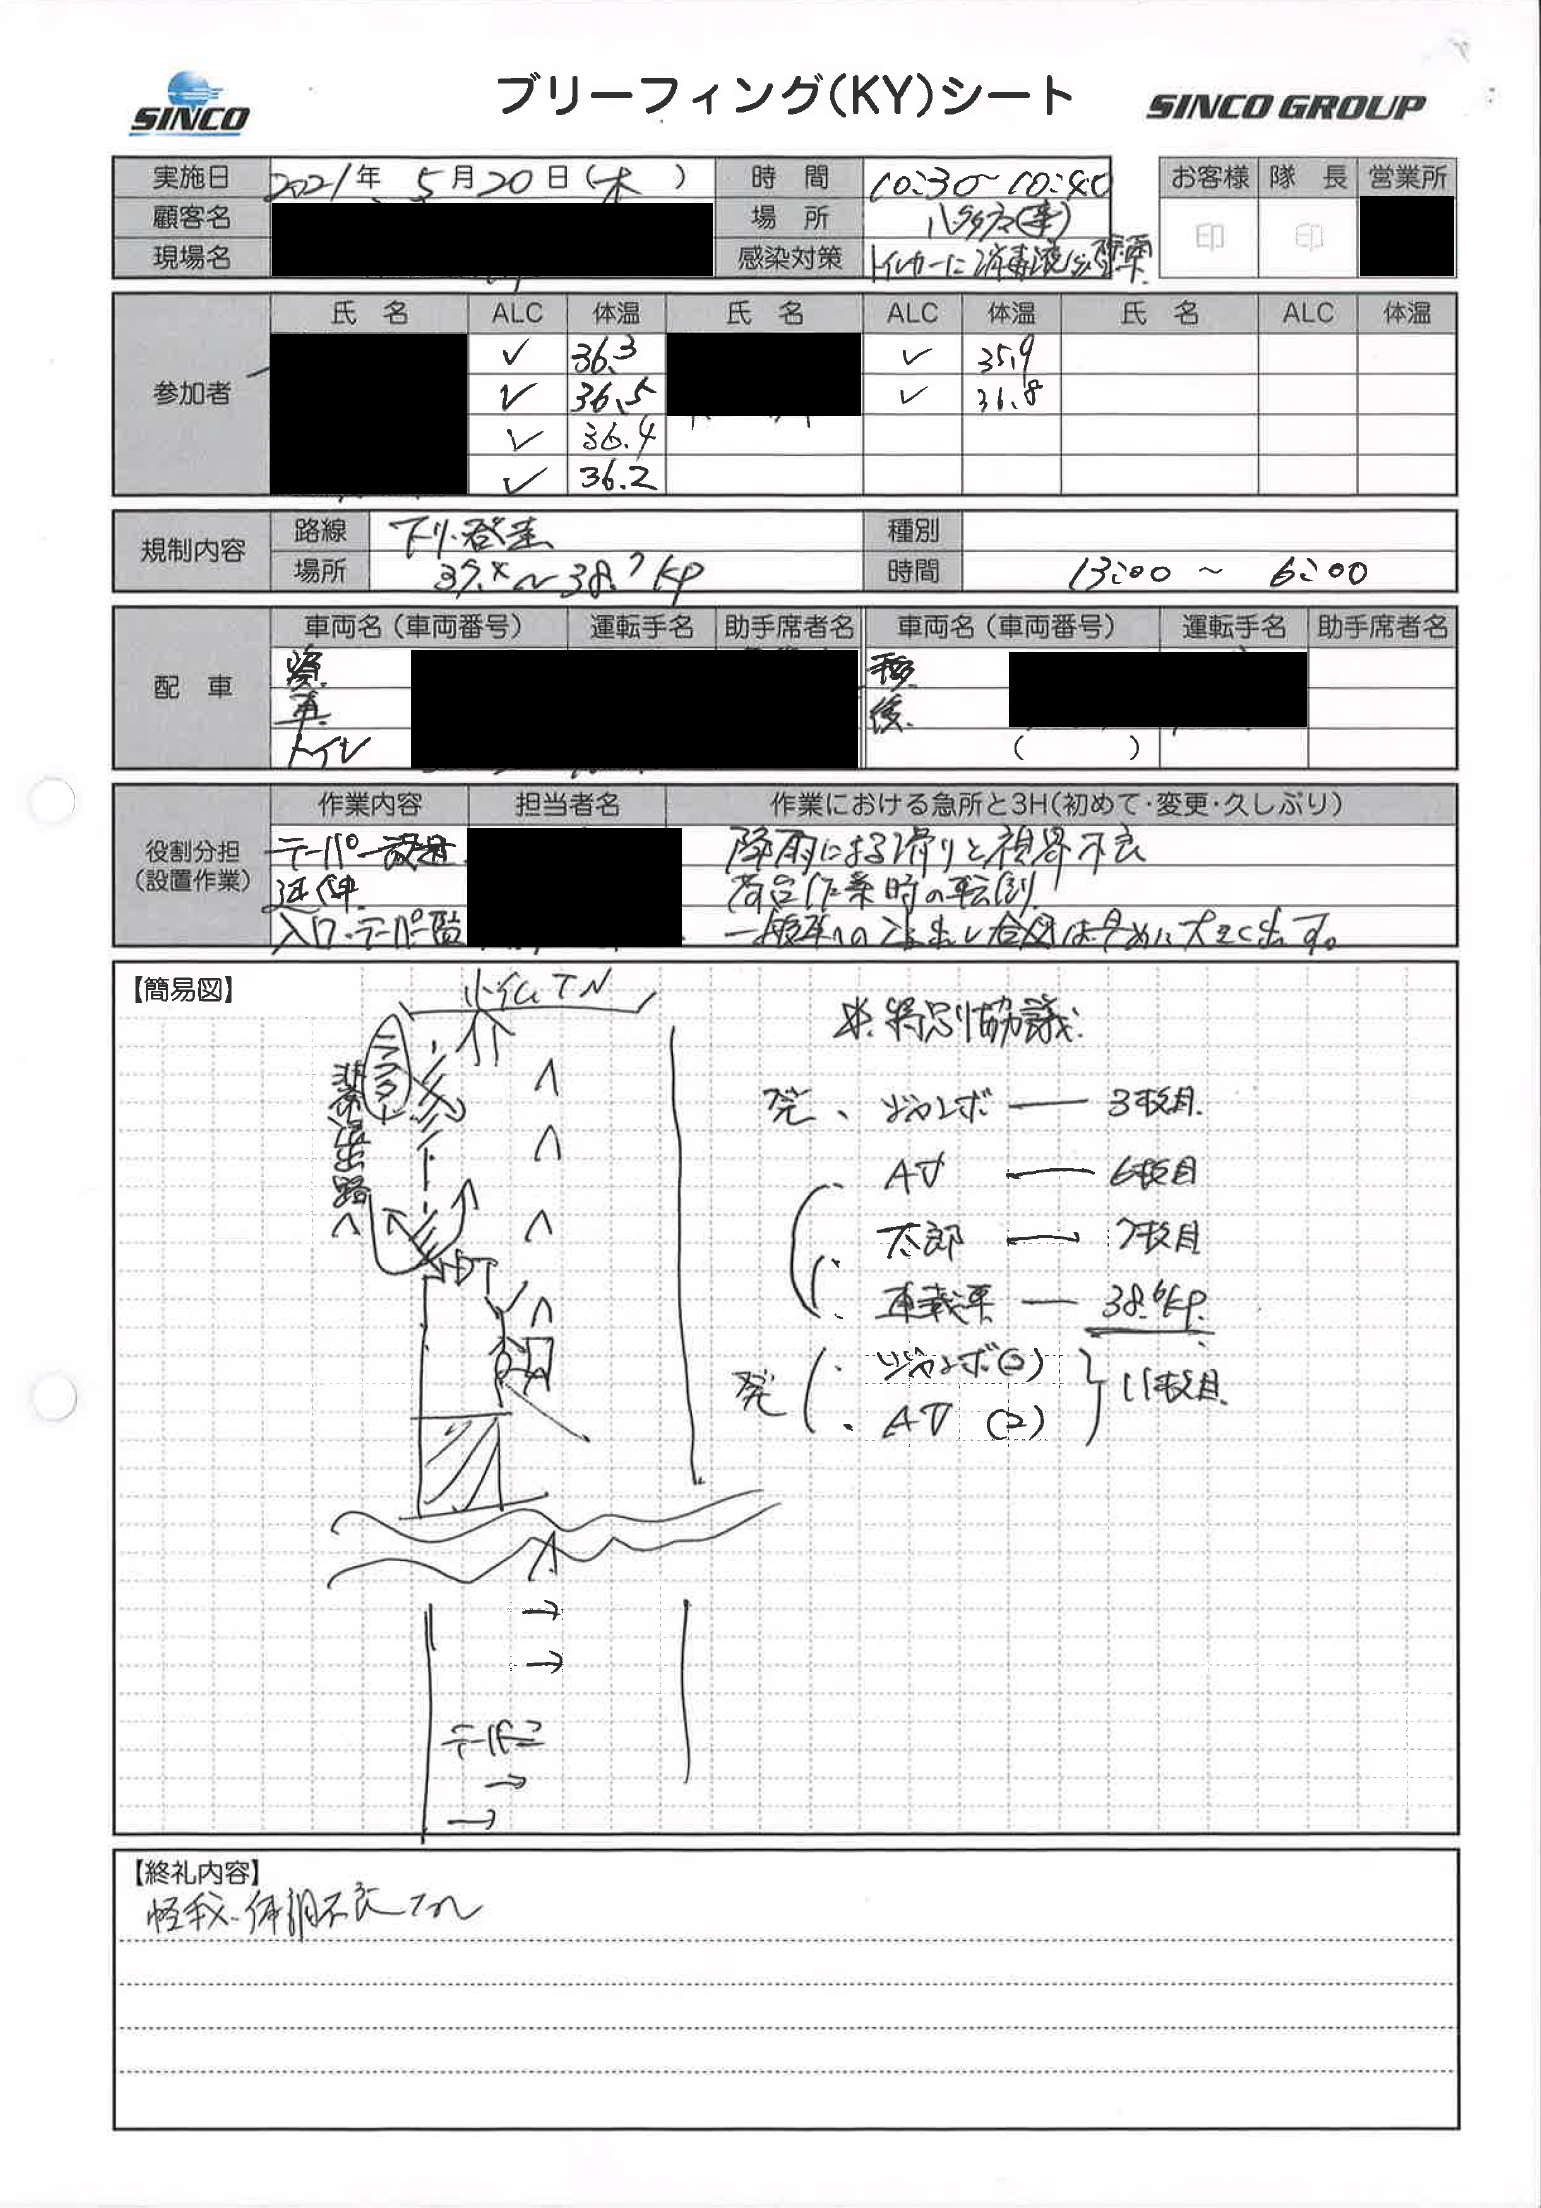 SINCO
ブリーフィング(KY)シート
SINCO GROUP
実施日 2021年 5月20日(木) 時間 10:30~10:40
お客様 隊長 営業所
顧客名 場所
印 印
現場名 感染対策 トイレカーに消毒液
参加者
氏名 ALC 体温 氏名 ALC 体温 氏名 ALC 体温
✓ 36.3 ✓ 35.9
✓ 36.5 ✓ 36.8
✓ 36.4
✓ 36.2
規制内容
路線 下り 登坂 種別
場所 37.4~38.7KP 時間 13:00 ~ 6:00
配車
車両名(車両番号) 運転手名 助手席者名 車両名(車両番号) 運転手名 助手席者名
標
後
トイレ ( )
役割分担
(設置作業)
作業内容 担当者名 作業における急所と3H(初めて・変更・久しぶり)
テーパー設置 降雨による滑りと視界不良
荷台作業時の転倒
入口・テーパー監 一般車への合図は早めに大きく出す。
【簡易図】
小仏TN
※特別協議
リフター
非常退出路へ
発、ジャンボ ― 3枚目
AV ― 6枚目
太郎 ― 7枚目
車載標 ― 38.6KP
発 ・ジャンボ(2) 11枚目
・AV (2)
テーパー
【終礼内容】
怪我・体調不良なし